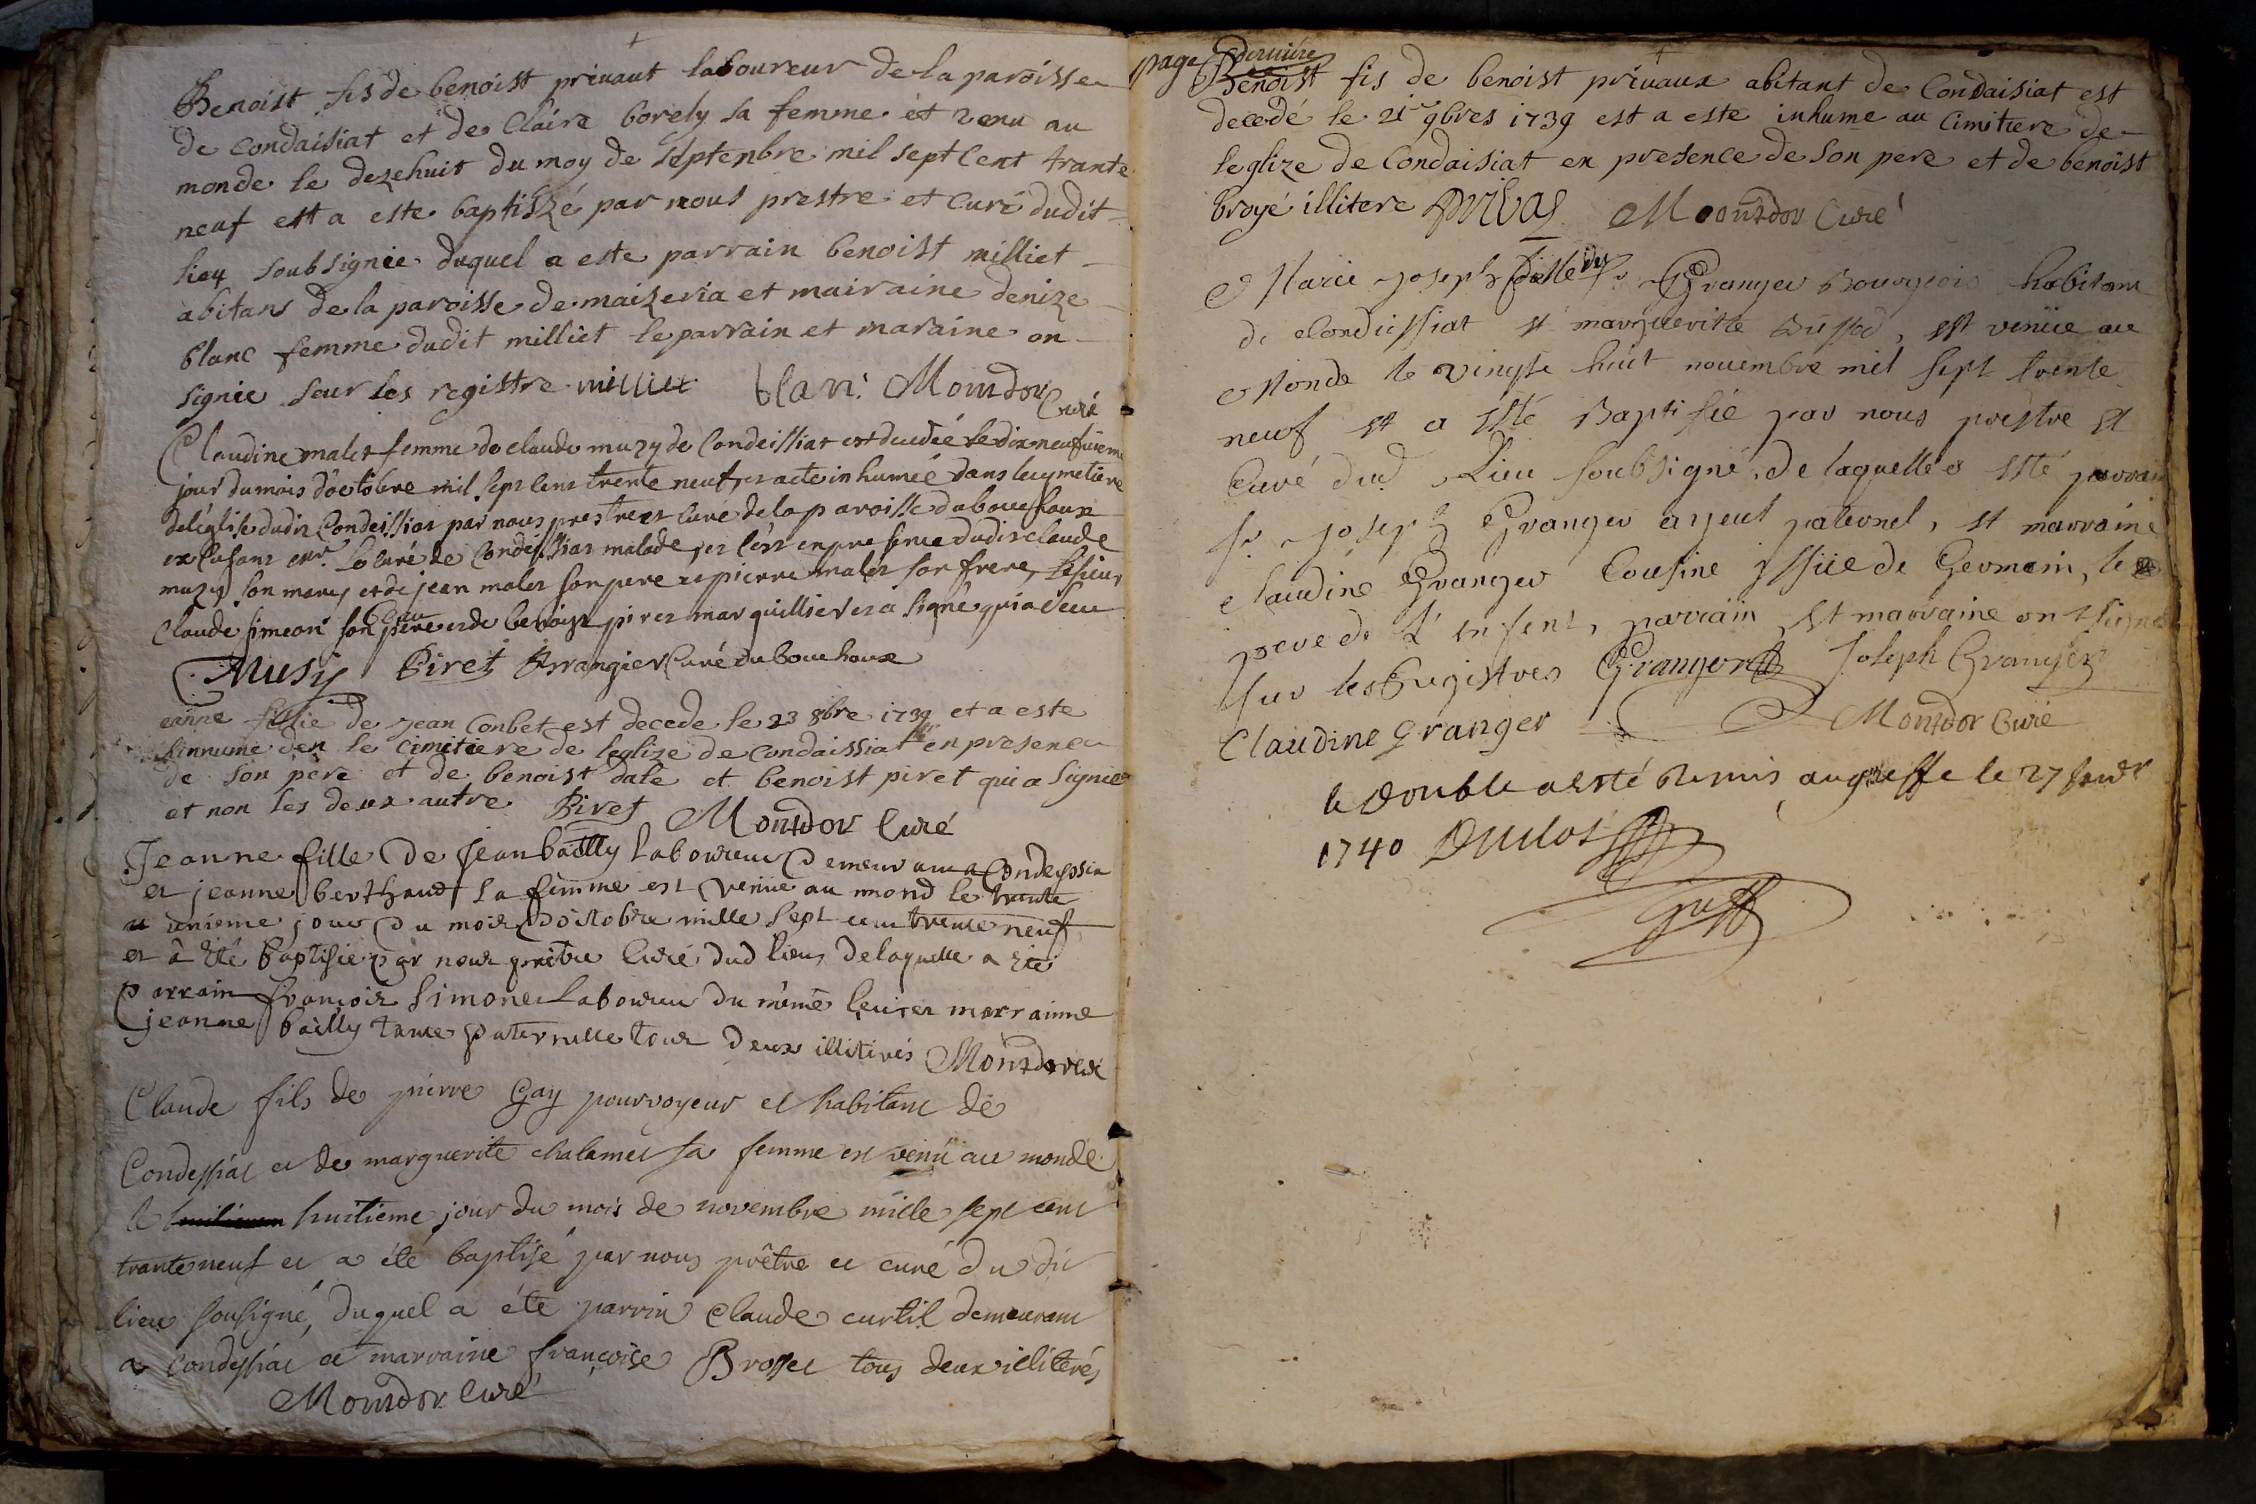 Benoist fis de benoist privaut laboureur de la paroisse
de Condaisiat et de Claire borely sa femme et venu au
monde le dezehuit du moy de septenbre mil sept Cent trante
neuf est a este baptiszé par nous prestre et Curé dudit
lieu soubsignie duquel a este parrain benoist milliet
abitans de la paroisse de maizeria et mairaine denize
blanc femme dudit milliet le parrain et maraine on
signie seur les registre milliet blan. Montdor
Curé
Claudine malet femme de claude muzy de Condeissiat est decedée le dixneufuieme
jour du mois d'octobre mil sept cent trente neuf, et a ete inhumeé dans le cymetiere
de leglise dudit Condeissiat par nous prestre et Curé de la paroisse du bouchoux
le Curé de Condeissiat malade, et en presence dudit claude
muzy son mary et de jean malet son pere et pierre malet son frere, le sieur
Claude simeon son beau père et de benoist piret marquillier et a signé qui a sceu
Musy Piret Arrangier Curé du bouchoux
eanne fillie de jean Conbet est decede le 23 8bre 1739 et a este
hinnume den le cimitiere de leglize de condaissiat en presence
de son père et de benoist date et benoist piret qui a signie
et non les deux autre Piret Montdor Curé
Jeanne fille de Jean bailly laboureur demeurant a Condeyssia
et jeanne berthaud sa femme est venüe au mond le trente
unieme jour du mois d'octobre mille sept cent trente neuf
et à été baptisie par nous prêtre Curé dud lieu, de laquelle a été
parrain françois simonet laboureur du même lieu et marrainne
jeanne bailly tante paternelle tous deux illitirés Montdor Curé
Claude fils de pierre Gay pourvoyeur et habitant de
Condessiat et de marguerite chalamet sa femme est venü au monde
le huitieme jour du mois de novembre mille sept cent
trante neuf et a été baptisé par nous prêtre et curé du dit
lieu sousigné, duquel a éte parrin Claude curtil demeurant
a Condessiat et marraine françoise Brosset tous deux illiterés
Montdor Curé
page derniére
Benoist fis de benoist privaux abitant de Condaisiat est
decedé le 21e 9bres 1739 est a este inhume au Cimitiere de
leglize de Condaisiat en presence de son pere et de benoist
broyé illitere privas Montdor Curé
Marie Joseph fille du Sr Granger Bourgeois habitant
de Condissiat et marguerite Bussod, est venüe au
Monde le vingte huit nouembre mil sept trente
neuf et a Esté Baptisée par nous prestre et
Curé dud Lieu soubsigné, de laquelle a esté parrain
Sr Joseph Granger ayeul paternel, et marraine
Claudine Granger Cousine yssüe de Germain, le
pere de L'enfent, parrain et marraine ont signé
sur les Registres Granger Joseph Granger
Claudine Granger Montdor Curé
le double a esté Remis au greffe le 27 Janvr
1740 Duclos
Greff